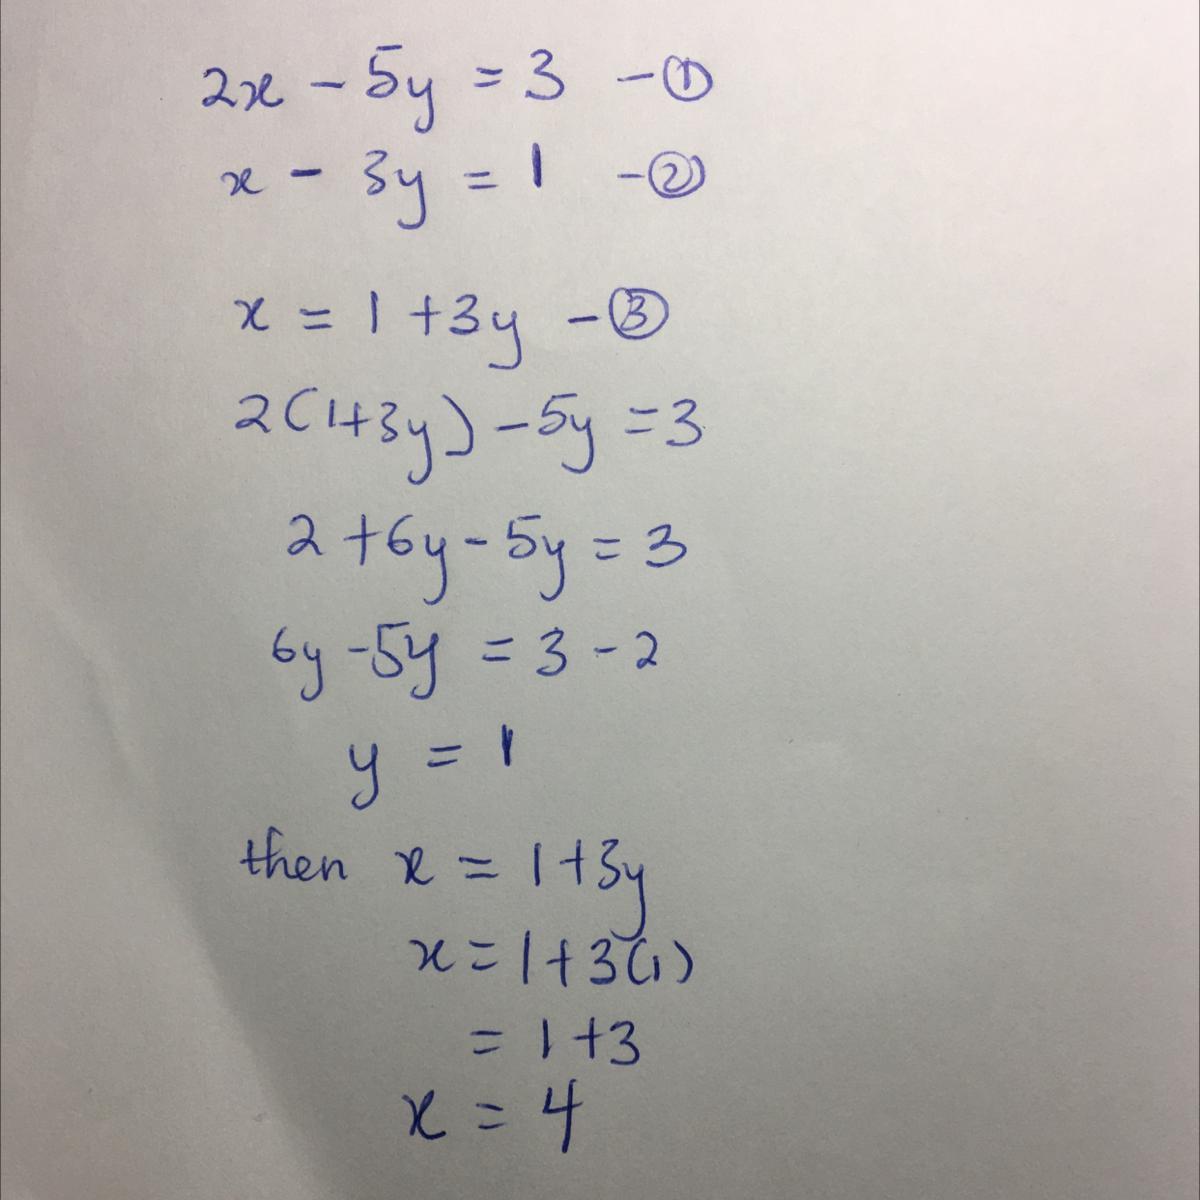 2x - 5y = 3 - ①
x - 3y = 1 - ②
x = 1 + 3y - ③
2(1+3y) - 5y = 3
2 + 6y - 5y = 3
6y - 5y = 3 - 2
y = 1
then x = 1 + 3y
x = 1 + 3(1)
= 1 + 3
x = 4